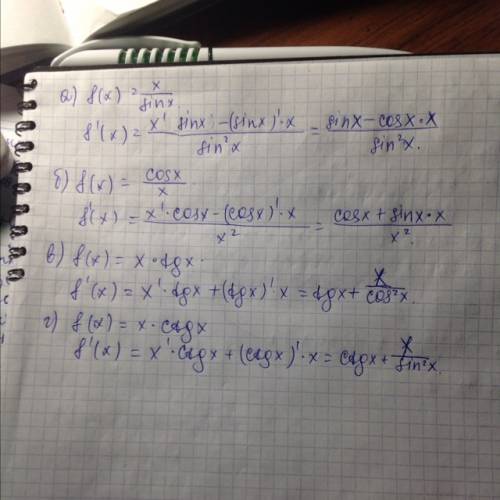 а) f(x) = x/sinx
f'(x) = (x' sinx - (sinx)'·x)/sin²x = (sinx - cosx·x)/sin²x.
б) f(x) = cosx/x
f'(x) = (x'·cosx - (cosx)'·x)/x² = (cosx + sinx·x)/x².
в) f(x) = x·tgx.
f'(x) = x'·tgx + (tgx)'x = tgx + x/cos²x.
г) f(x) = x·ctgx
f'(x) = x'·ctgx + (ctgx)'·x = ctgx + x/sin²x.